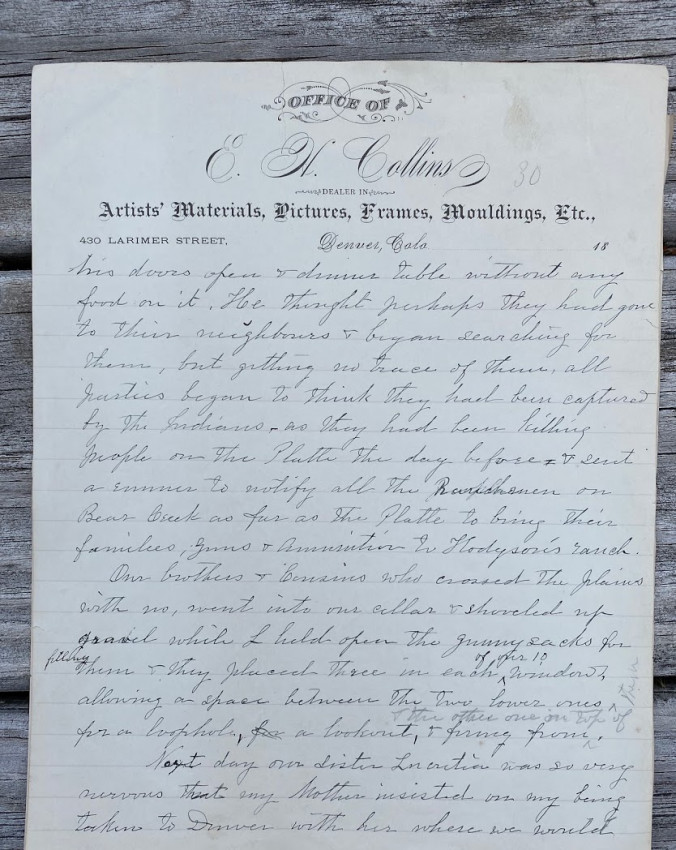 OFFICE OF
E. H. Collins
30
DEALER IN
Artists' Materials, Pictures, Frames, Mouldings, Etc.,
430 LARIMER STREET, Denver, Colo 18
his doors open & dinner table without any
food on it. He thought perhaps they had gone
to their neighbours & began searching for
them, but getting no trace of them, all
parties began to think they had been captured
by the Indians - as they had been killing
people on the Platte the day before = & sent
a runner to notify all the Ranchmen on
Bear Creek as far as the Platte to bring their
families, guns & Ammunition to Hodgson's ranch.
Our brothers & Cousins who crossed the plains
with us, went into our cellar & shoveled up
gravel while I held open the gunny sacks for
filling of our 10
them & they placed three in each window,
allowing a space between the two lower ones
& the other one on top of them
for a loophole, for a lookout, & firing from.
Next day our sister Lucretia was so very
nervous that my Mother insisted on my being
taken to Denver with her where we would